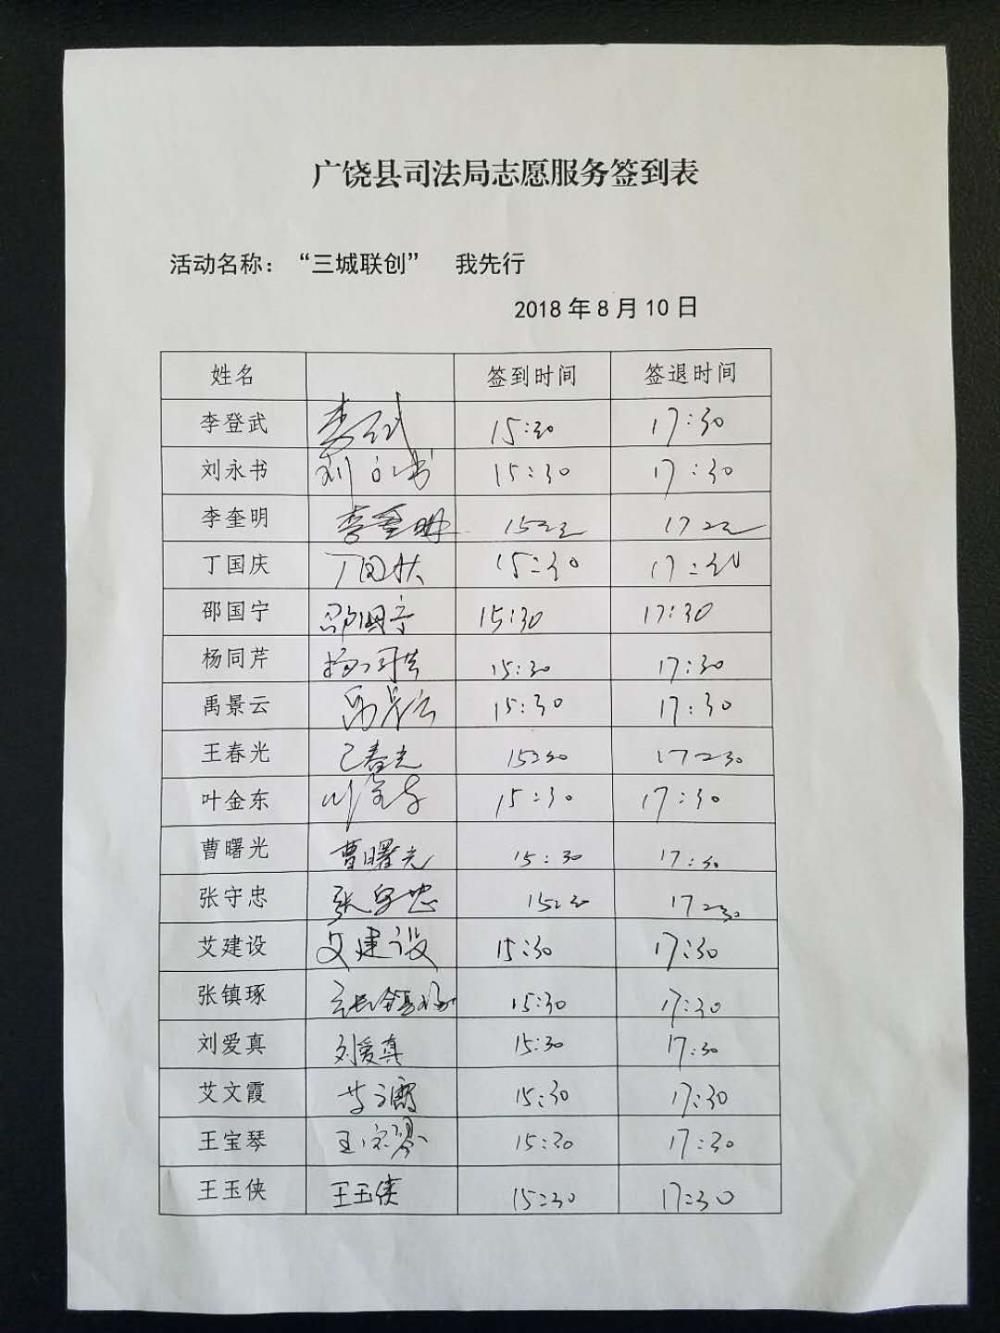 广饶县司法局志愿服务签到表
活动名称：“三城联创” 我先行
2018年8月10日
姓名 签到时间 签退时间
李登武 15:30 17:30
刘永书 刘永书 15:30 17:30
李奎明 李奎明
丁国庆 丁国庆 15:30
邵国宁 邵国宁 15:30 17:30
杨同芹 杨同芹 15:30 17:30
禹景云 禹景云 15:30 17:30
王春光 王春光 15:30 17:30
叶金东 叶金东 15:30 17:30
曹曙光 曹曙光 15:30 17:30
张守忠 张守忠 15:30 17:30
艾建设 艾建设 15:30 17:30
张镇琢 张镇琢 15:30 17:30
刘爱真 刘爱真 15:30 17:30
艾文霞 艾文霞 15:30 17:30
王宝琴 王宝琴 15:30 17:30
王玉侠 王玉侠 15:30 17:30